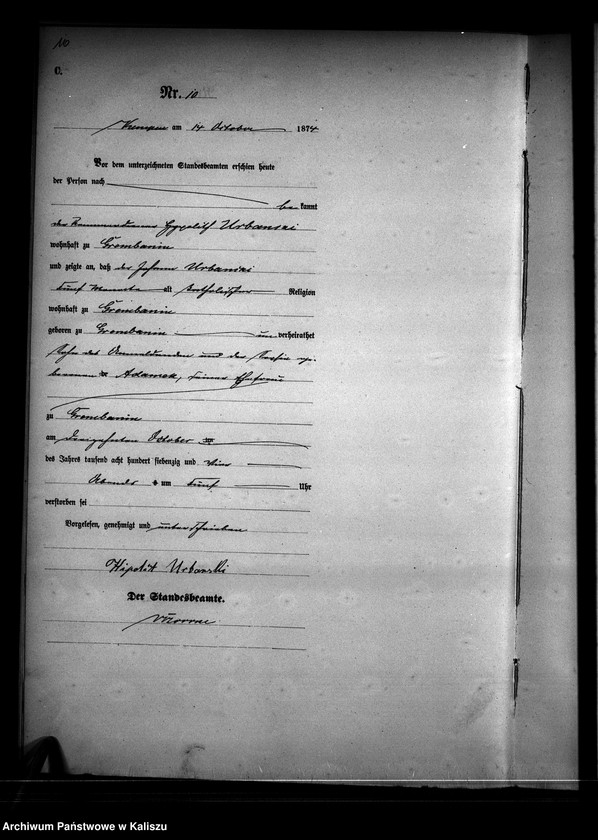 10
C.
Nr. 10
Kempen am 14 October 1874
Vor dem unterzeichneten Standesbeamten erschien heute
der Person nach
be kannt
Urbanski
wohnhaft zu Grembanin
und zeigte an, daß der Johann Urbanski
fünf Monate alt katholischer Religion
wohnhaft zu Grembanin
geboren zu Grembanin un verheirathet
Sohn des Anmeldenden und der
Adamek, seiner Ehefrau
zu Grembanin
am dreizehnten October
des Jahres tausend acht hundert siebenzig und vier
Abends um fünf Uhr
verstorben sei
Vorgelesen, genehmigt und unterschrieben
Hipolit Urbański
Der Standesbeamte.
Archiwum Państwowe w Kaliszu